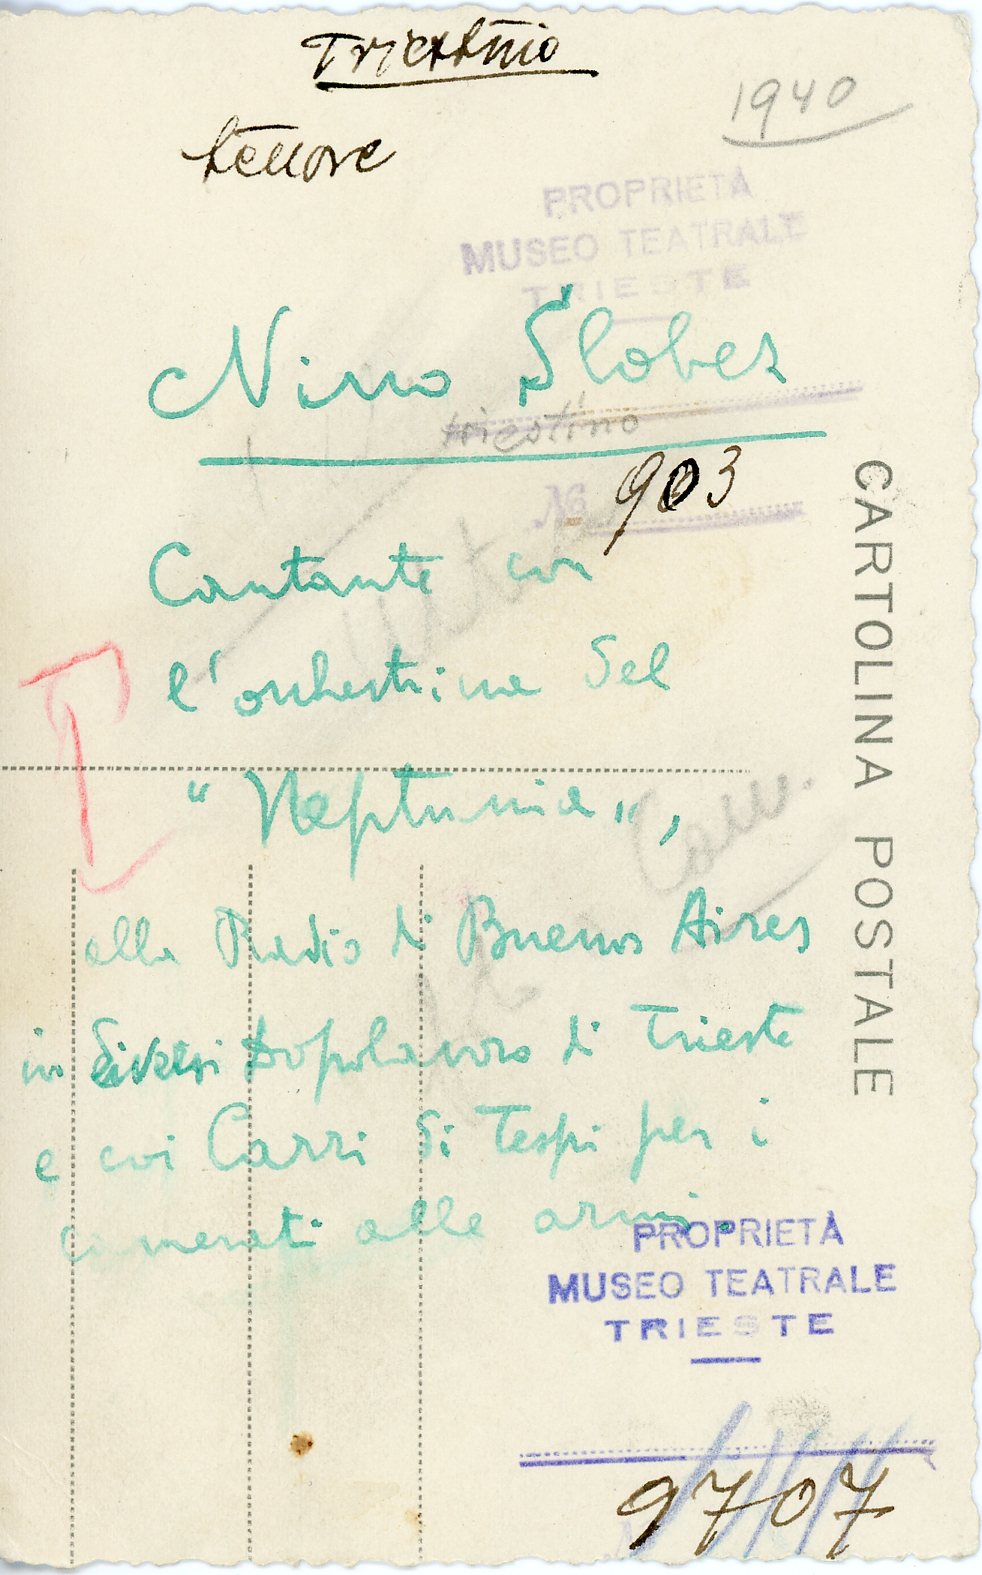 Triestino
1940
tenore
PROPRIETÀ
MUSEO TEATRALE
TRIESTE
Nino Slobez
triestino
№ 903
Cantante con
l'orchestrina del
"Neptunia",
alla Radio di Buenos Aires
in diversi Dopolavoro di Trieste
e coi Carri di Tespi per i
camerati alle armi.
CARTOLINA POSTALE
PROPRIETÀ
MUSEO TEATRALE
TRIESTE
9707